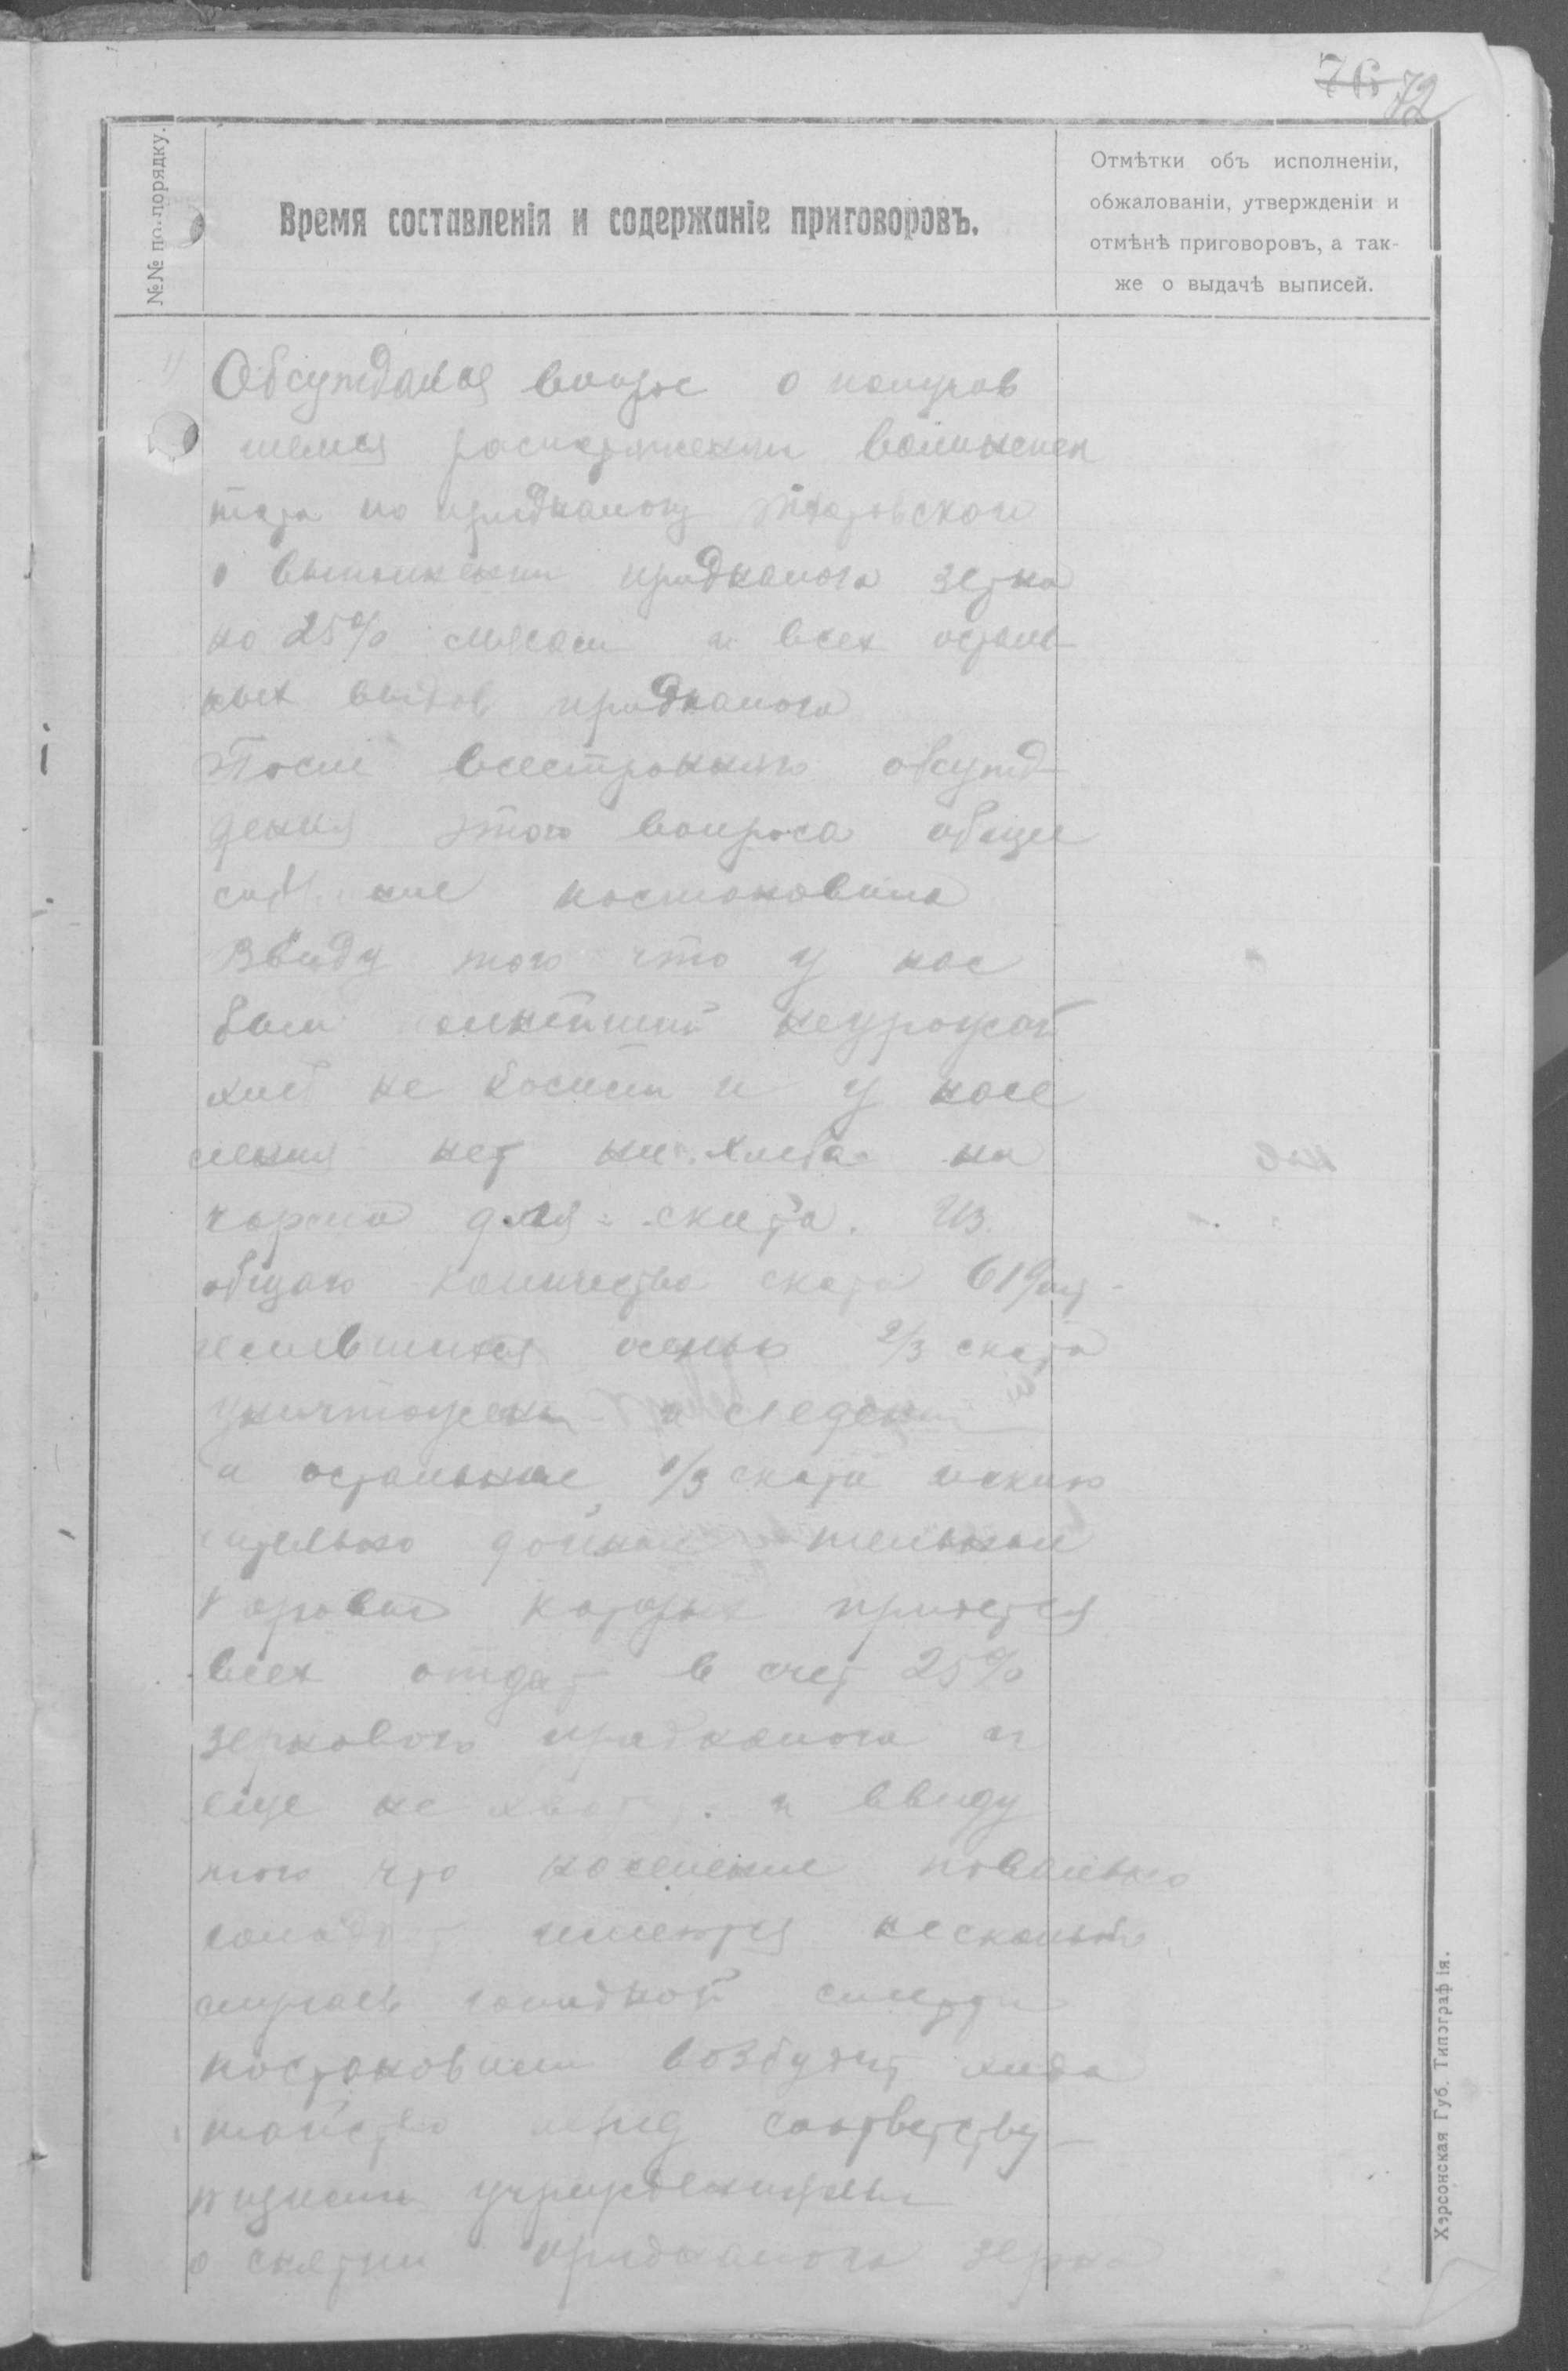 76 72
№№ по порядку.
Время составленія и содержаніе приговоровъ.
Отмѣтки объ исполненіи,
обжалованіи, утвержденіи и
отмѣнѣ приговоровъ, а так-
же о выдачѣ выписей.
Обсуждался вопрос о получив
шемся распоряжении
по продналогу
о выполнении продналога зерна
на 25% мясом и всех осталь
ных видов продналога
После всестроннего обсужд
дения этого вопроса общее
собрание постоновило
Ввиду того что у нас
был неурожай
хлеб не косили и у насе
ления нет ни хлеба ни
корма для скота. Из
общаго количества скота 619
осенью 2/3 скота
уничтожены и сведены
а остальные 1/3 скота исклю
чительно дойные тельные
коровы которых придется
всех отдать в счет 25%
зернового продналога и
еще не хватит. и ввиду
того что население повально
голодает имеются несколько
случаев голодной смерти
постоновили возбудить хода
тайство перед соответству
ющими учреждениями
о снятии продналога зерна
Херсонская Губ. Типографія.